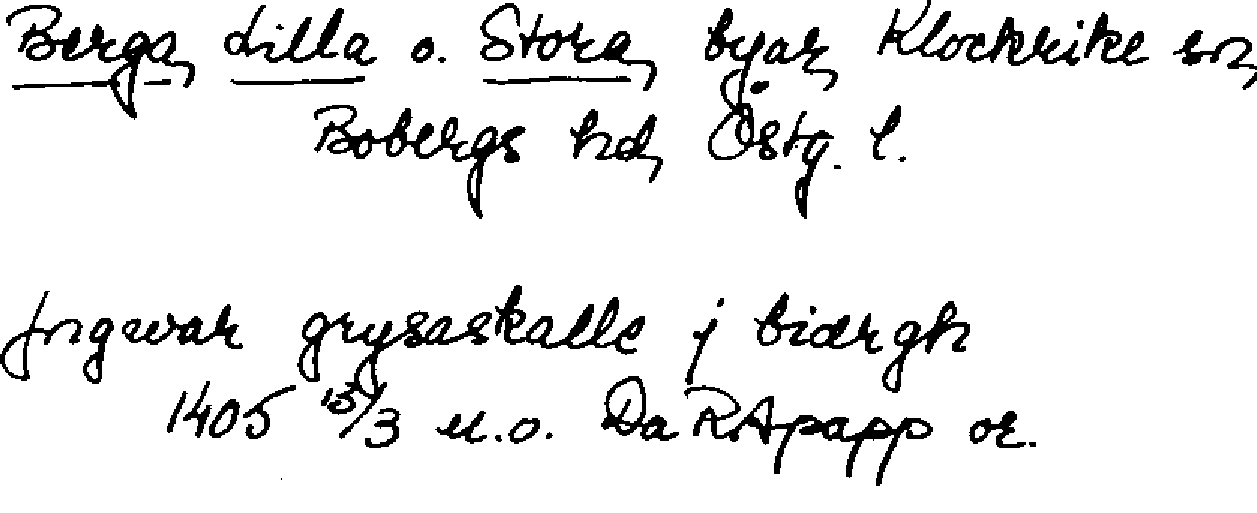 Berga, Lilla o. Stora, byar, Klockrike sn,
Bobergs hd, Östg. l.
Jngwar grysaskalle j biærgh
1405 15/3 u.o. Da RApapp or.